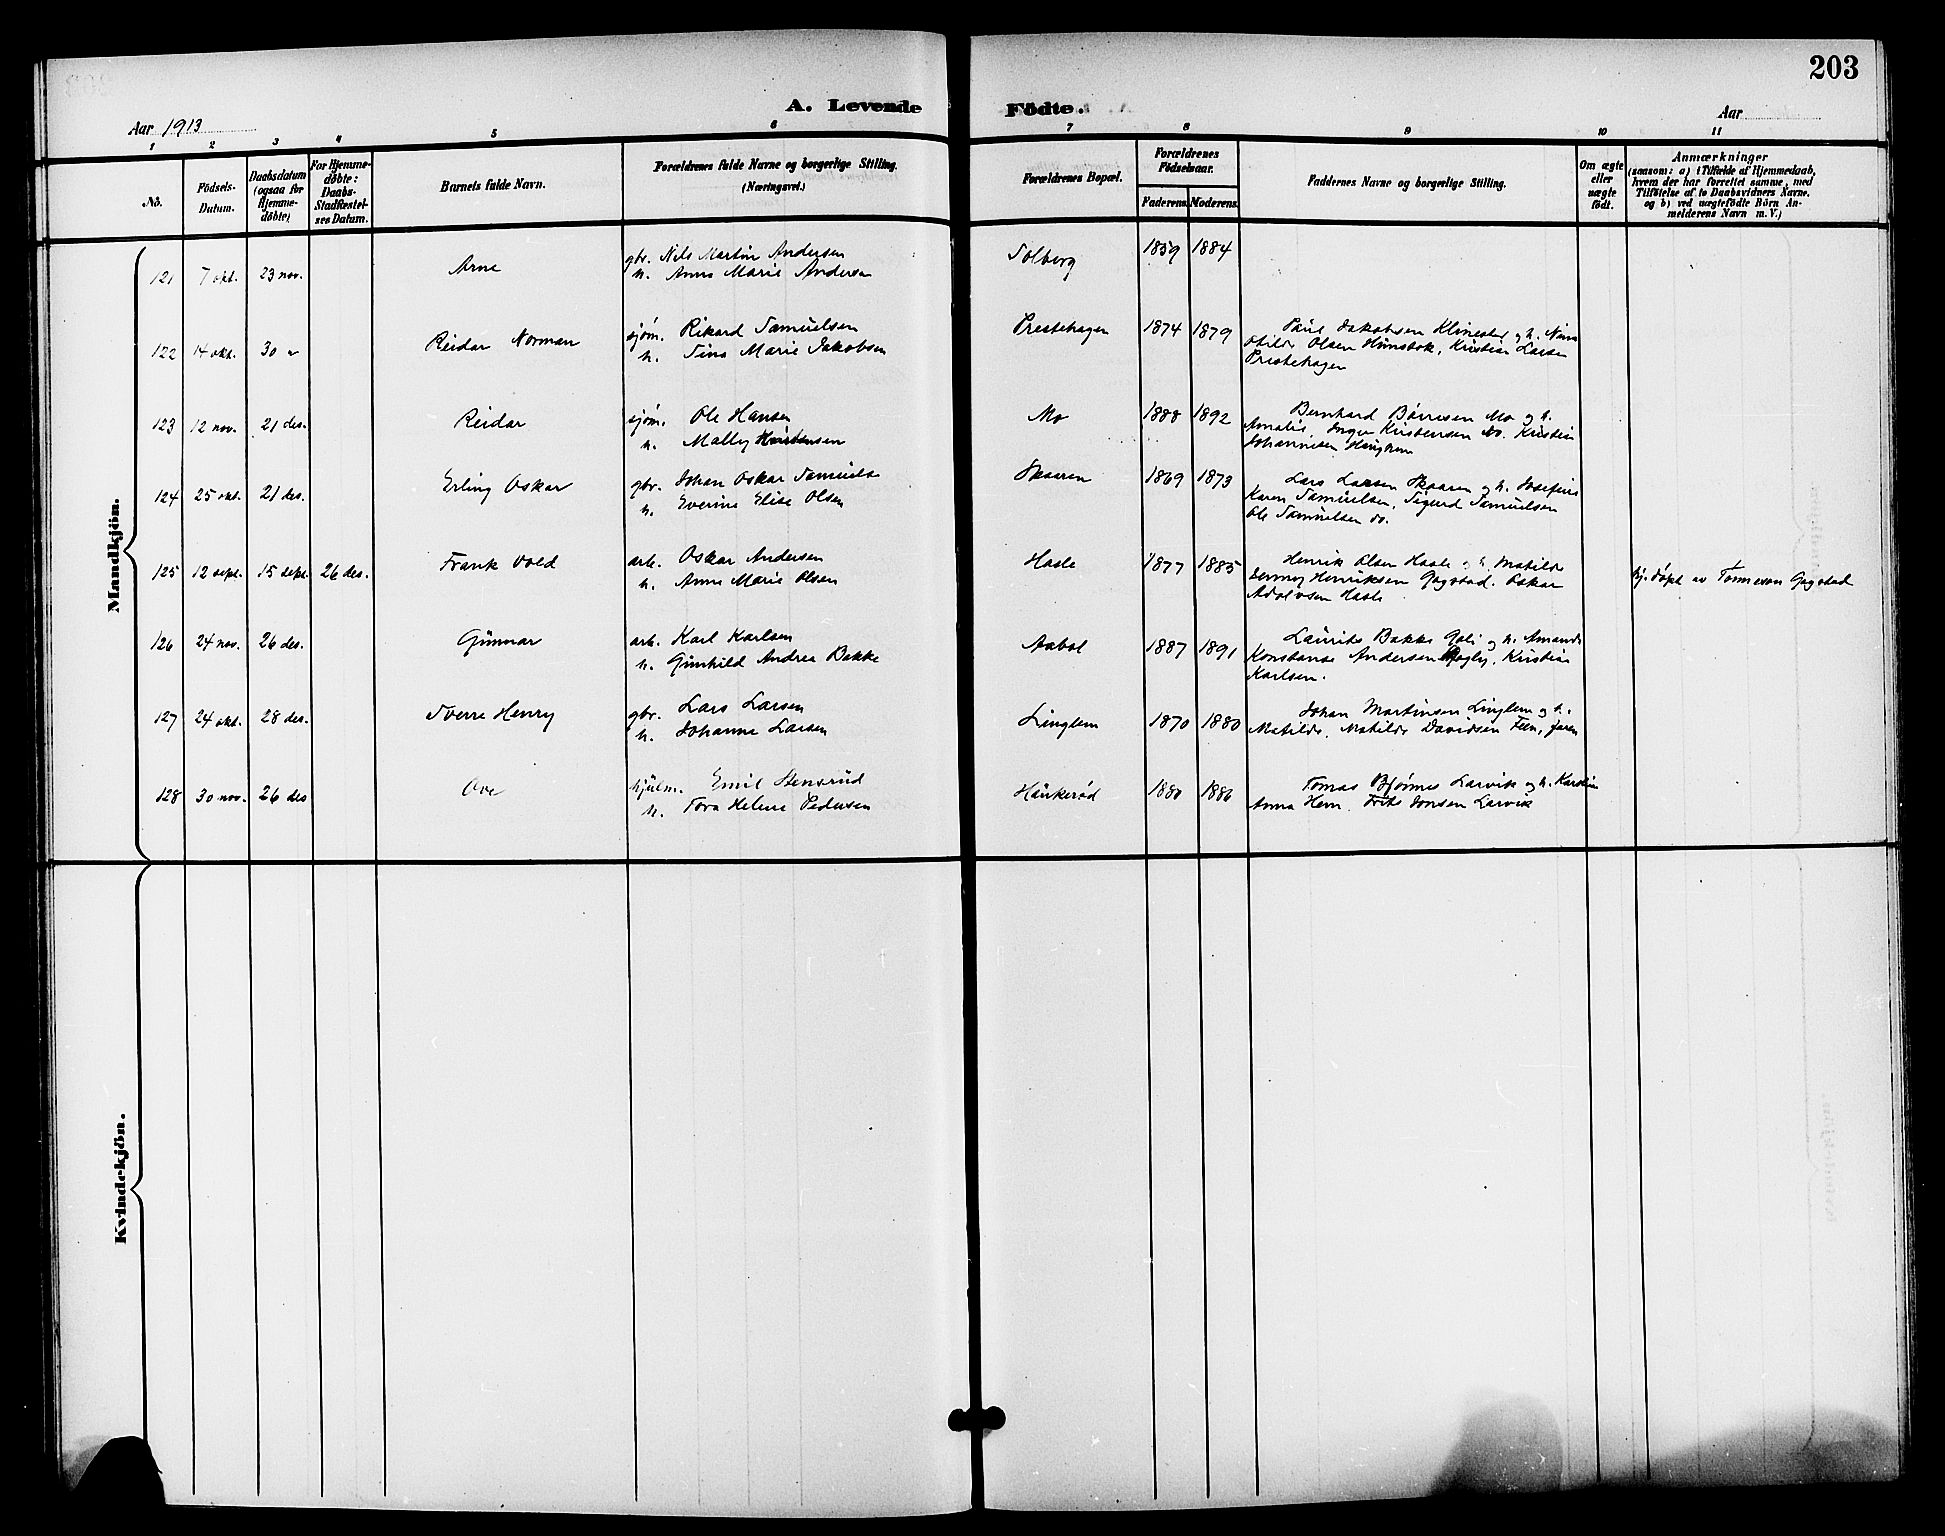 203
A. Levende Födte.
Aar 1913
Aar
1 2 3 4 5 6 7 8 9 10 11
No.
Födsels-Datum.
Daabsdatum (ogsaa for Hjemme-döbte)
For Hjemme-döbte: Daabs-Stadfæstel-ses Datum.
Barnets fulde Navn.
Forældrenes fulde Navne og borgerlige Stilling. (Næringsvei.)
Forældrenes Bopæl.
Forældrenes Födselsaar.
Faderens. Moderens.
Faddernes Navne og borgerlige Stilling.
Om ægte eller uægte födt.
Anmærkninger
(saasom: a) i Tilfælde af Hjemmedaab,
hvem der har forrettet samme, med
Tilföielse af to Daabsvidners Navne.
og b) ved uægtefödte Börn An-
melderens Navn m. V.)
Mandkjön.
121 7 okt. 23 nov. Arne gbr. Nils Martin Andersen Solberg 1859 1884
h. Anna Marie Andersen
122 14 okt. 30 " Reidar Norman sjøm. Rikard Samuelsen Prestehagen 1874 1879 Paul Jakobsen Klinestad og h.
h. Sina Marie Jakobsen Otilde Olsen Kristian Larsen
Prestehagen
123 12 nov. 21 des. Reidar sjøm. Ole Hansen Mo 1888 1892 Bernhard Børresen Mo og h.
h. Mally Kristensen Amalie, Inger Kristensen do. Kristian
Johannesen Haugren
124 25 okt. 21 des. Erling Oskar gbr. Johan Oskar Samuelsen Skaaren 1869 1873 Lars Larsen Skaaren og h. Josefine
h. Everine Elise Olsen Karen Samuelsen, Sigurd Samuelsen
Ole Samuelsen do.
125 12 sept. 15 sept. 26 des. Frank Vold arb. Oskar Andersen Hasle 1877 1885 Henrik Olsen Hasle og h. Matilde hj. døpt av Gogstad
h. Anna Marie Olsen Henriksen Gogstad. Oskar
Adolvsen Hasle
126 24 nov. 26 des. Gunnar arb. Karl Karlsen Aabol 1887 1891 Laurits Bakke og h. Amanda
h. Gunhild Andrea Bakke Konstanse Andersen Kristian
Karlsen.
127 24 okt. 28 des. Sverre Henry gbr. Lars Larsen Linglem 1870 1880 Johan Martinsen Linglem og h.
h. Johanne Larsen Matilde. Matilde Davidsen Feen,
128 30 nov. 26 des Ove hjulm. Emil Stensrud Haukerød 1880 1886 Tomas Bjønnes Larvik og h. Karoline
h. Tora Helene Pedersen Anna Hem. Frits Jonsen Larvik
Kvindekjön.